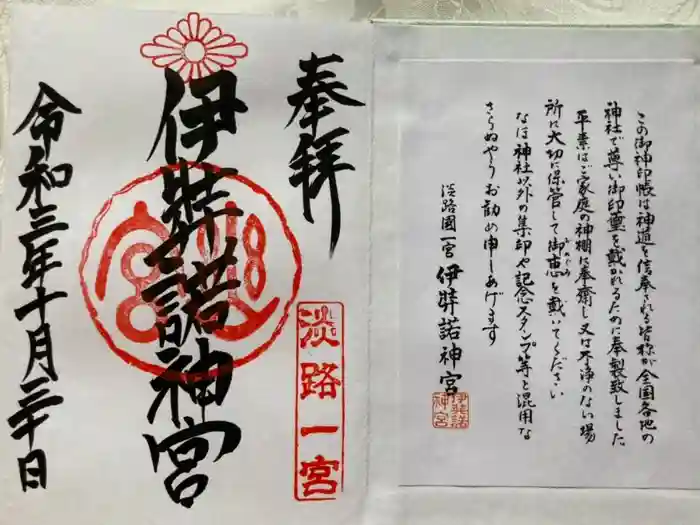 この御神印帳は神道を信奉される皆様が全国各地の
神社で尊い御印璽を戴かれるために奉製致しました
平素はご家庭の神棚に奉斎し又は不浄のない場
所に大切に保管して御恵を戴いてください
なほ神社以外の集印や記念スタンプ等と混用な
さらぬやうお勧め申しあげます
淡路國一宮 伊弉諾神宮
伊弉諾
神宮
奉拝
淡路一宮
伊弉諾神宮
令和三年十月三十日